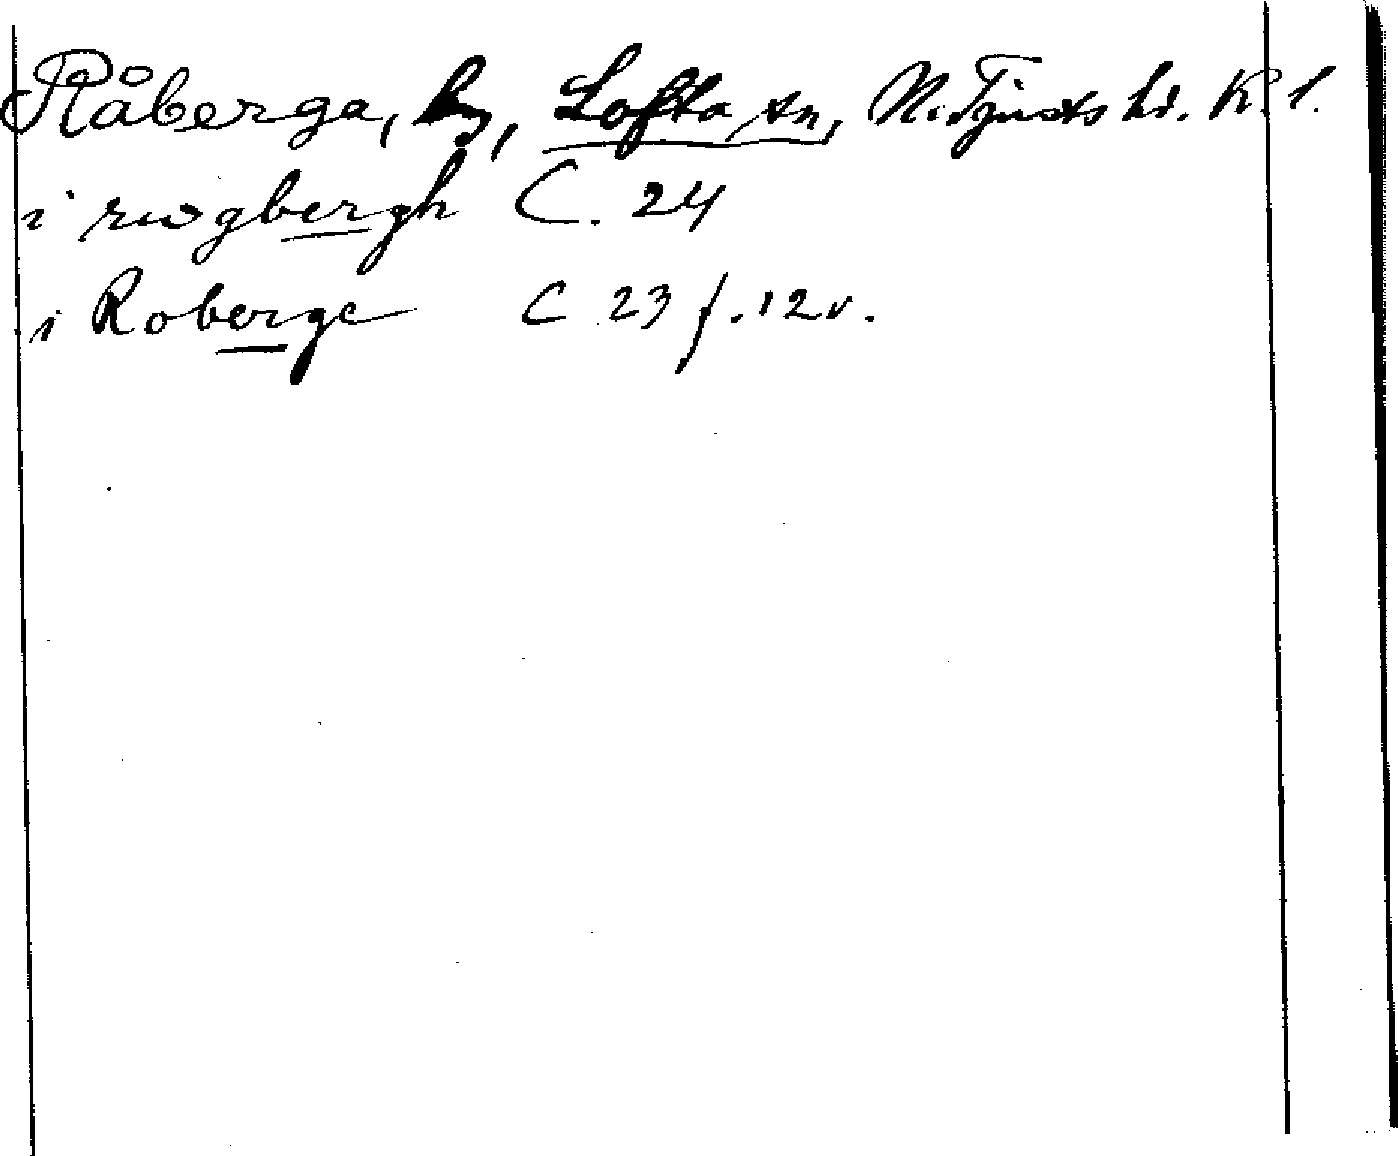 Råberga, by, Lofta sn, N. Tjusts hd. K. l.
i rwgbergh C. 24
i Roberge C 23 f. 12v.